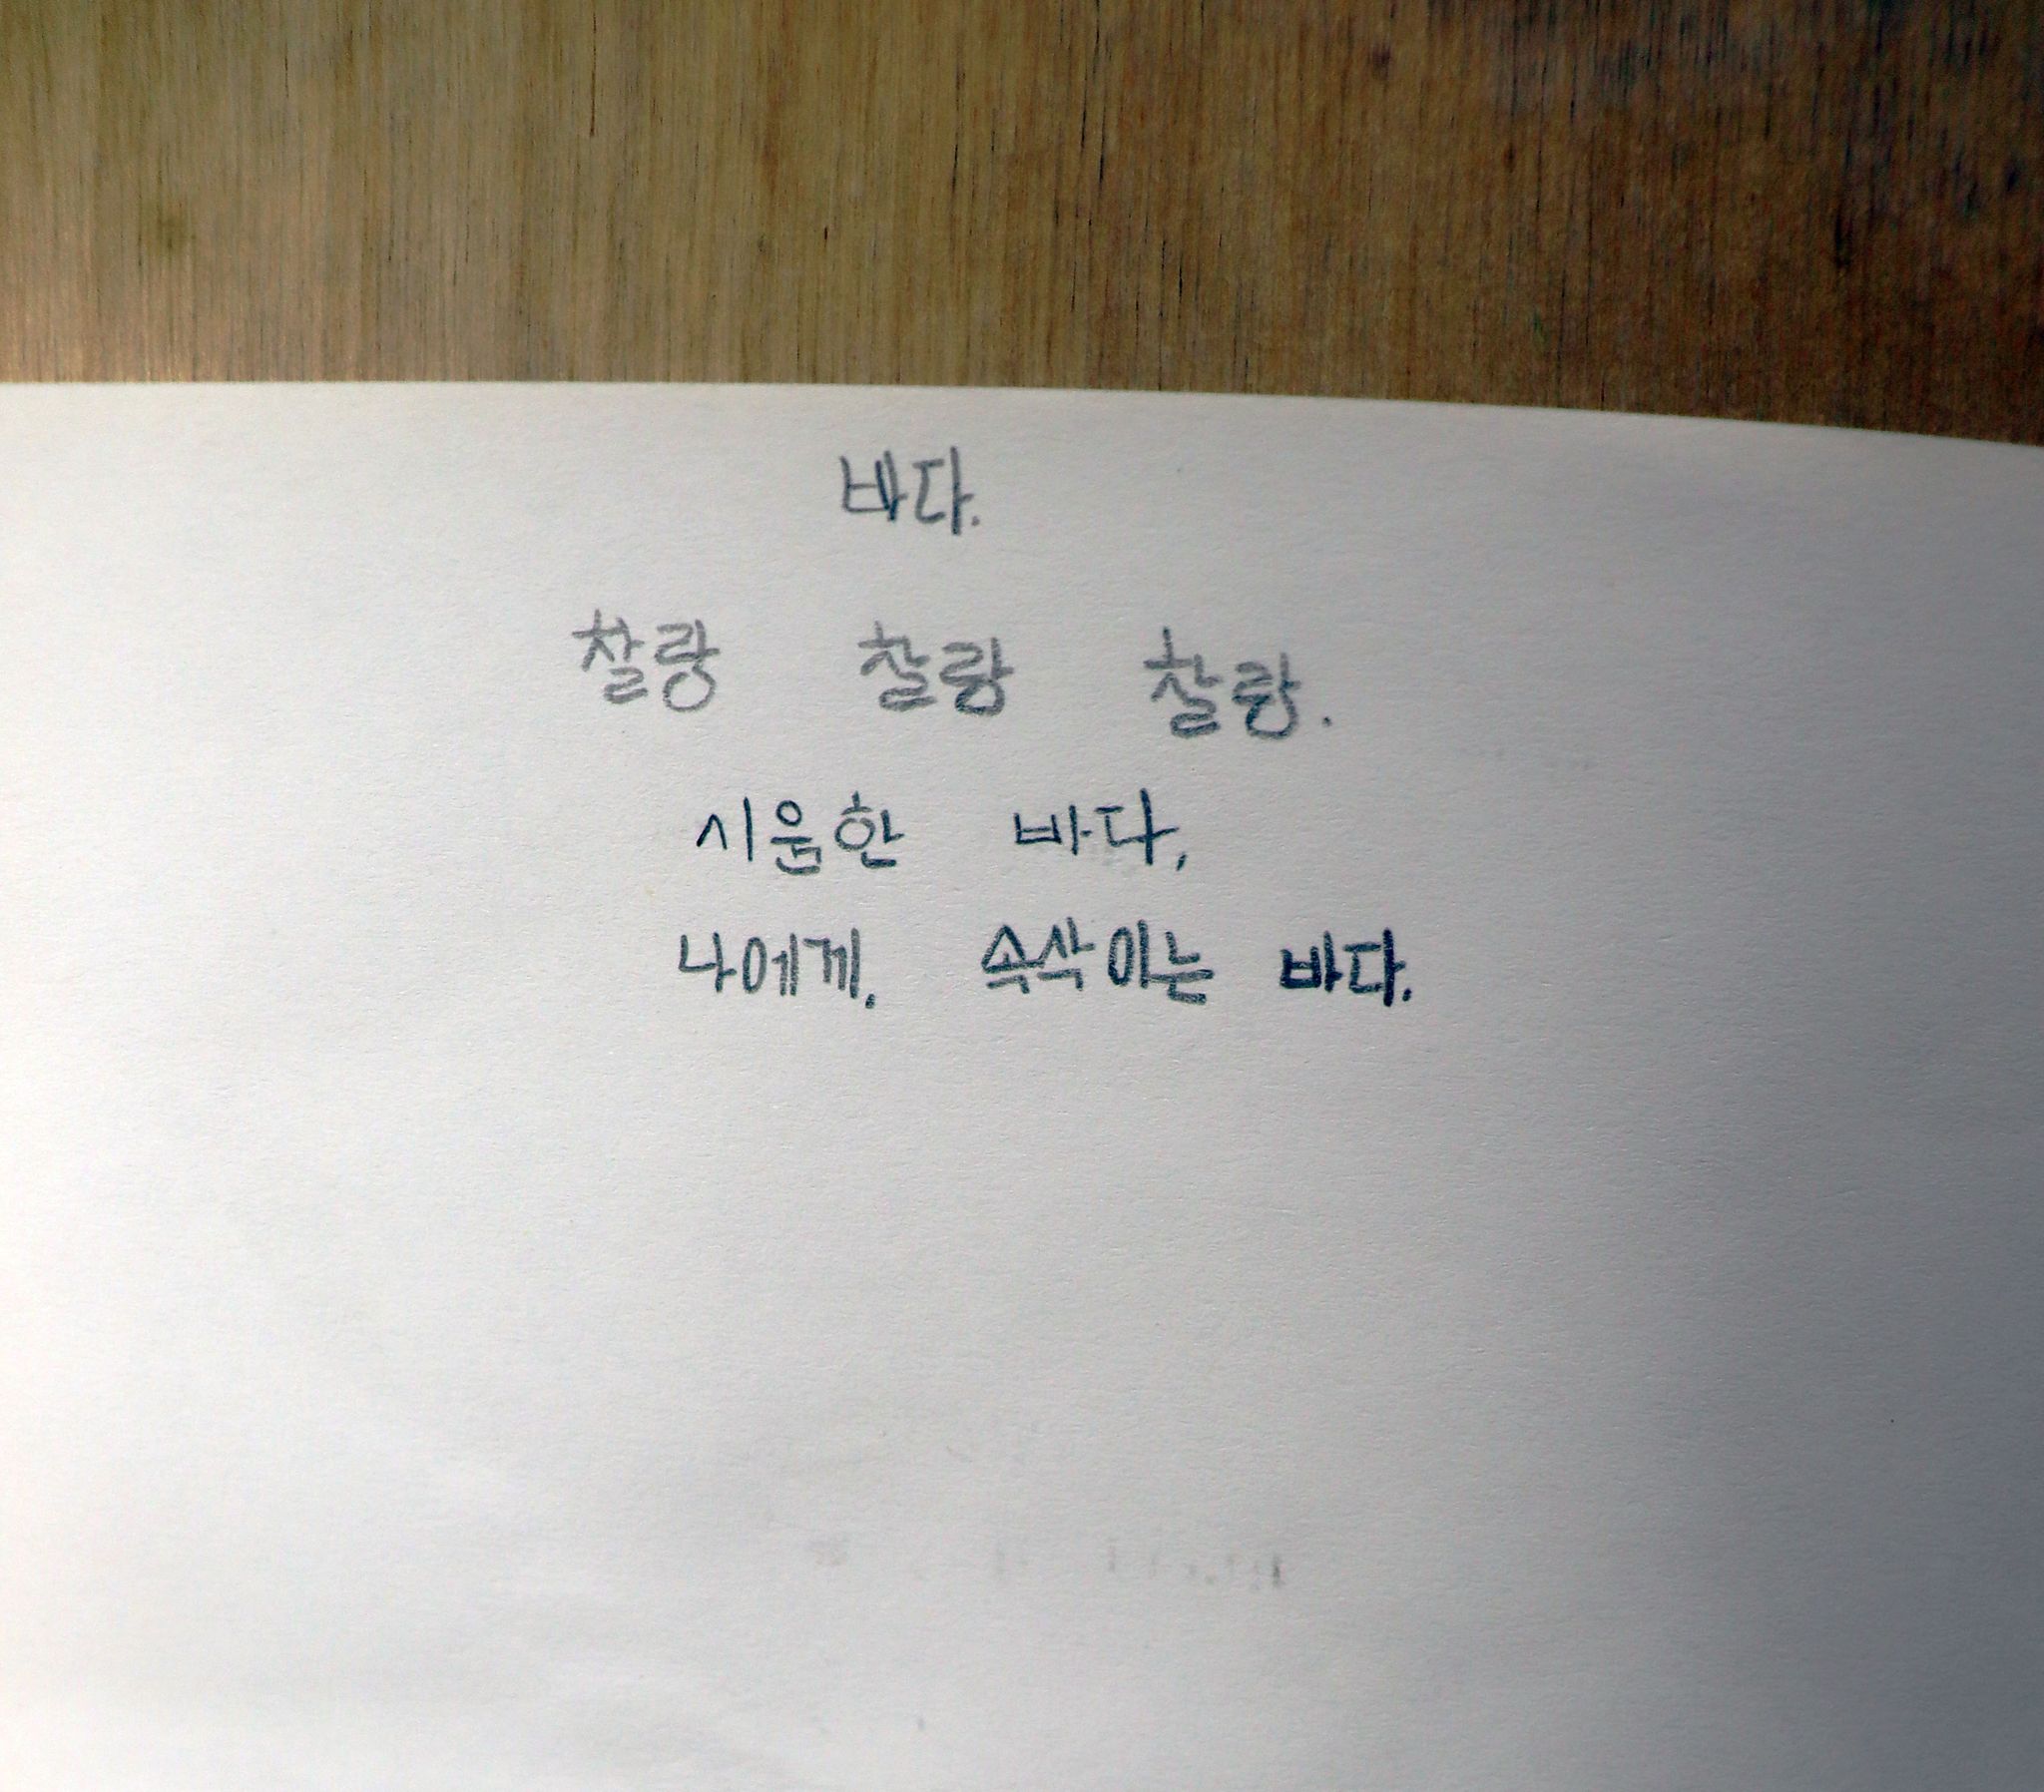 바다.
찰랑 찰랑 찰랑.
시웁한 바다,
나에게. 속삭이는 바다.